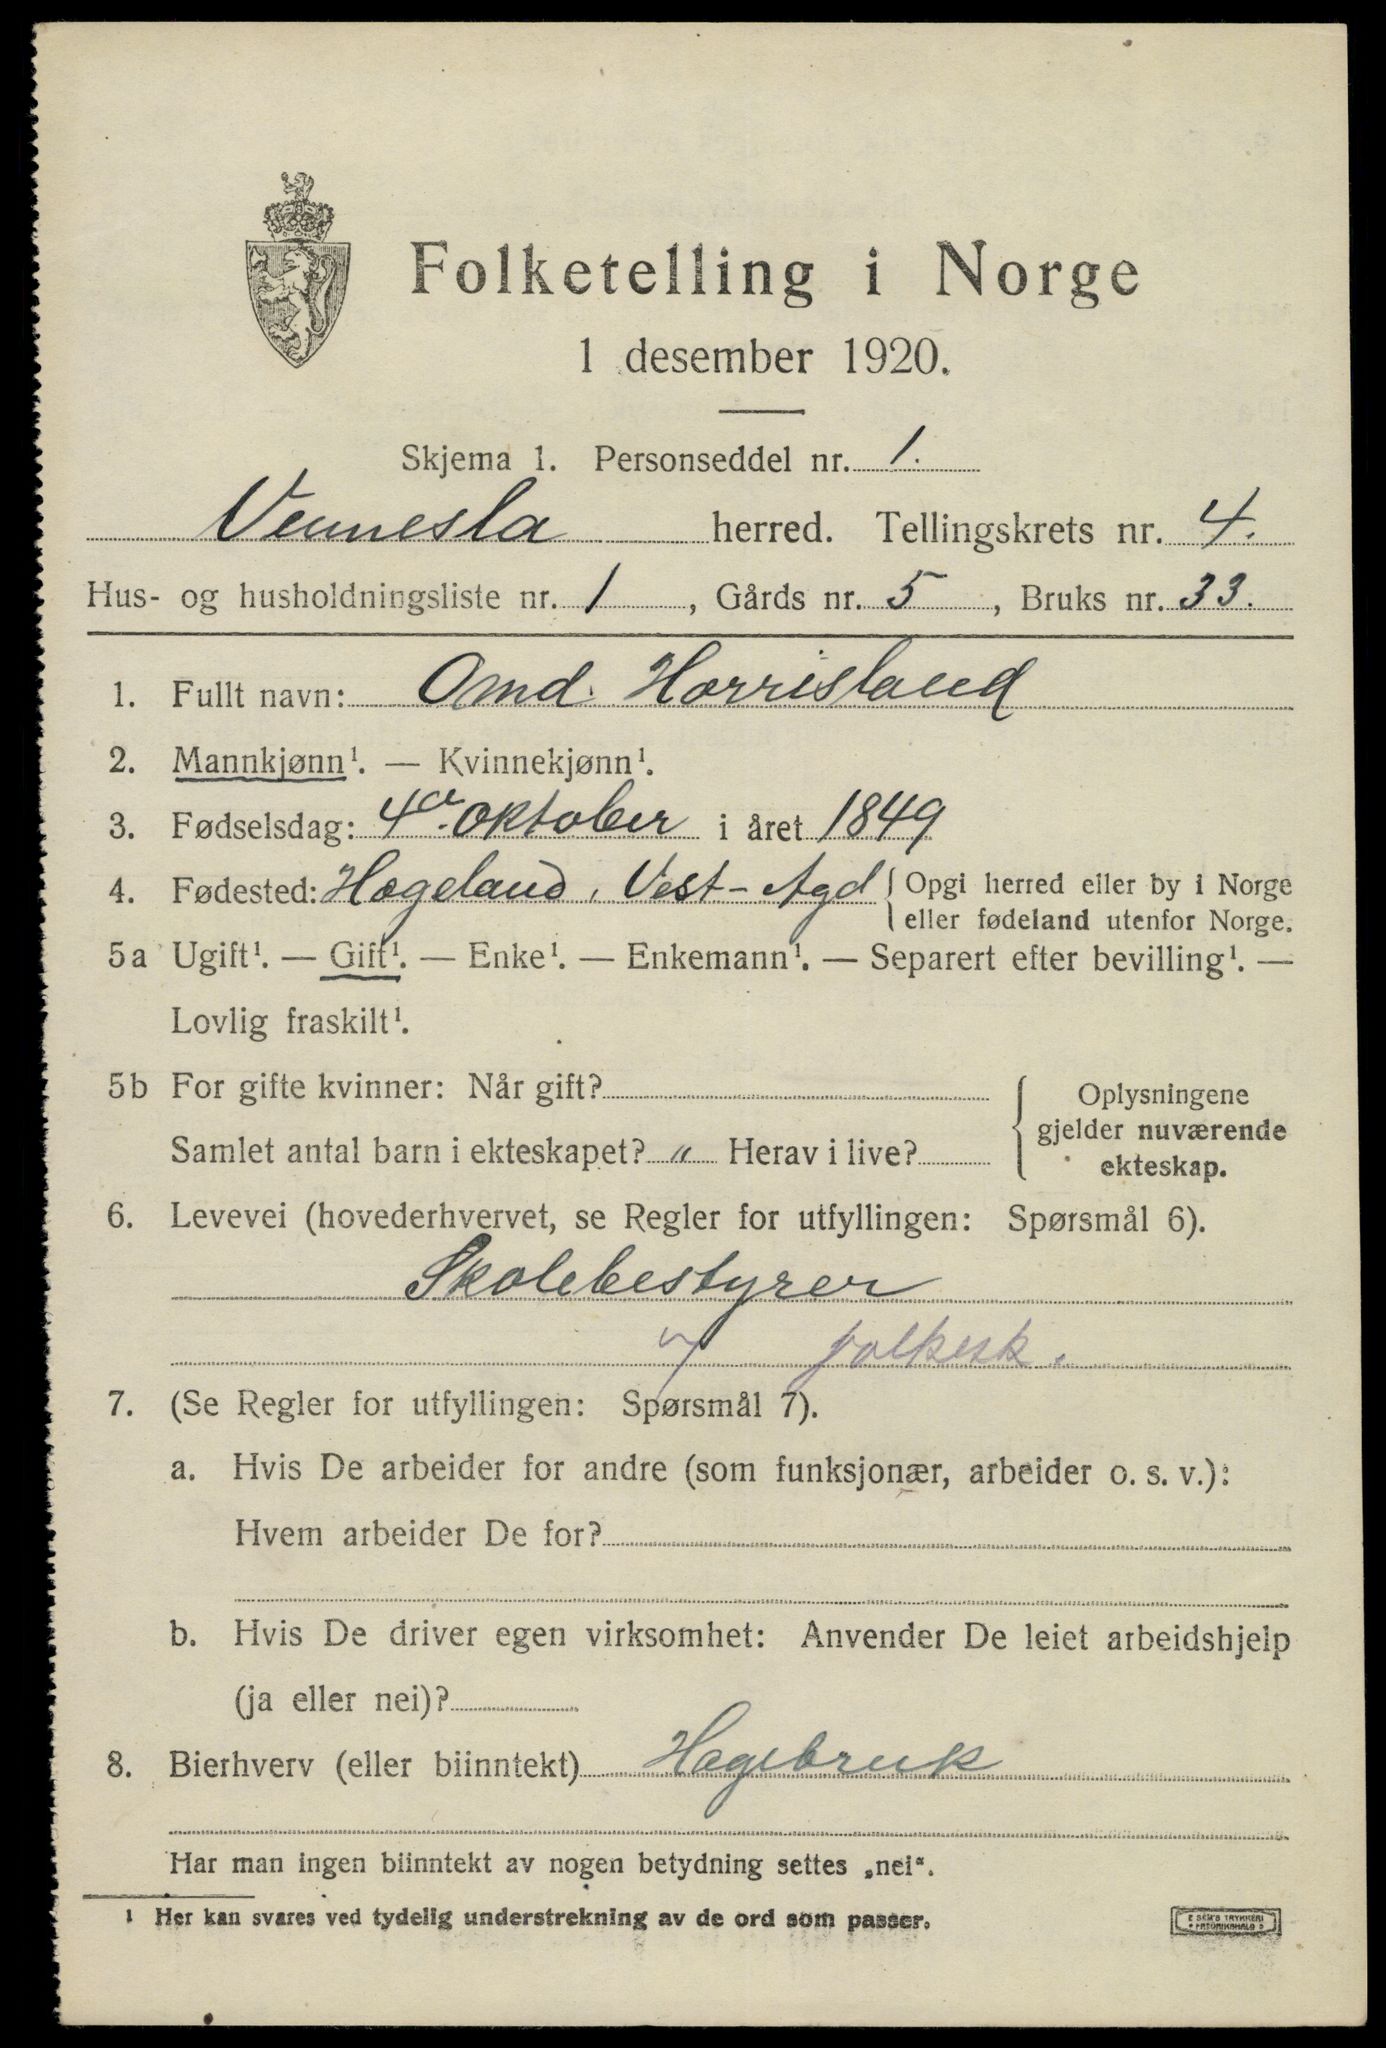 Folketelling i Norge
1 desember 1920.
Skjema 1. Personseddel nr. 1.
Vennesla herred. Tellingskrets nr. 4.
Hus- og husholdningsliste nr. 1, Gårds nr. 5, Bruks nr. 33.
1. Fullt navn: Omd. Horrisland
2. Mannkjønn¹. — Kvinnekjønn¹.
3. Fødselsdag: 4de oktober i året 1849
4. Fødested: Hægeland, Vest-Agd { Opgi herred eller by i Norge
eller fødeland utenfor Norge.
5a Ugift¹. — Gift¹. — Enke¹. — Enkemann¹. — Separert efter bevilling¹. —
Lovlig fraskilt¹.
5b For gifte kvinner: Når gift?
Samlet antal barn i ekteskapet? „ Herav i live?
{ Oplysningene
gjelder nuværende
ekteskap.
6. Levevei (hovederhvervet, se Regler for utfyllingen: Spørsmål 6).
Skolebestyrer
v/ folkesk.
7. (Se Regler for utfyllingen: Spørsmål 7).
a. Hvis De arbeider for andre (som funksjonær, arbeider o. s. v.):
Hvem arbeider De for?
b. Hvis De driver egen virksomhet: Anvender De leiet arbeidshjelp
(ja eller nei)?
8. Bierhverv (eller biinntekt) Hagebruk
Har man ingen biinntekt av nogen betydning settes „nei“.
¹ Her kan svares ved tydelig understrekning av de ord som passer.
E SEM'S TRYKKERI
FREDRIKSHALD